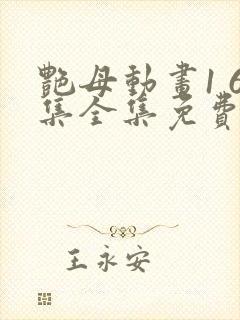 艷母動畫1 6
集全集免費
王永安